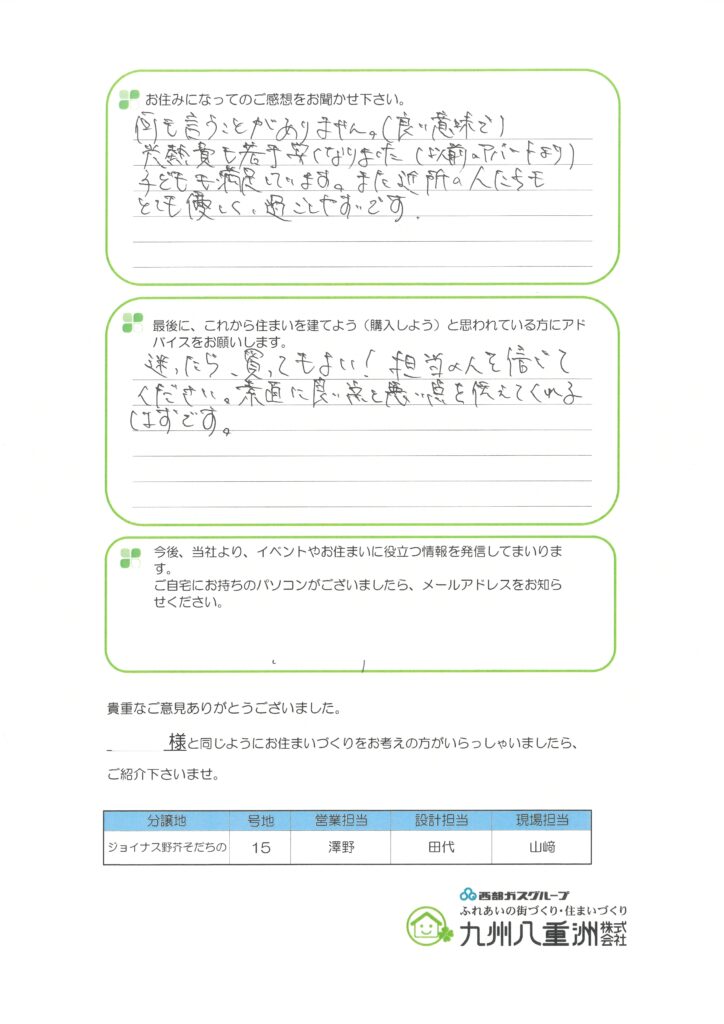 お住みになってのご感想をお聞かせ下さい。
何も言うことがありません。(良い意味で)
光熱費も若干安くなりました(以前のアパートより)
子どもも満足しています。また近所の人たちも
とても優しく、過ごしやすいです.
最後に、これから住まいを建てよう(購入しよう)と思われている方にアド
バイスをお願いします。
迷ったら、買ってもよい! 担当の人を信じて
ください。素直に良い点と悪い点を伝えてくれる
はずです。
今後、当社より、イベントやお住まいに役立つ情報を発信してまいりま
す。
ご自宅にお持ちのパソコンがございましたら、メールアドレスをお知ら
せください。
貴重なご意見ありがとうございました。
様と同じようにお住まいづくりをお考えの方がいらっしゃいましたら、
ご紹介下さいませ。
分譲地 号地 営業担当 設計担当 現場担当
ジョイナス野芥そだちの 15 澤野 田代 山﨑
西部ガスグループ
ふれあいの街づくり・住まいづくり
九州八重洲株式会社